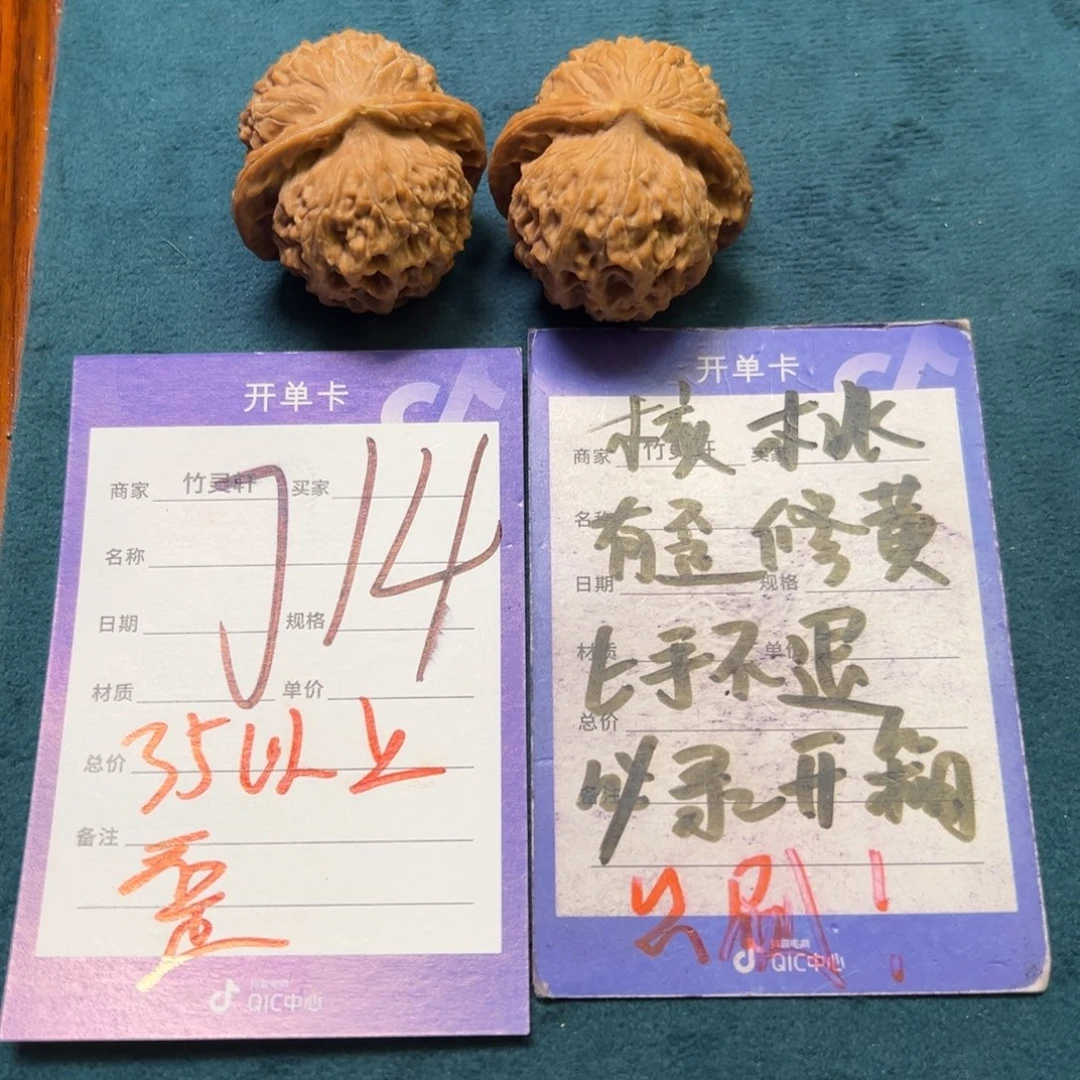 开单卡
商家 竹灵轩 买家
J14
名称
日期 规格
材质 单价
总价
35以上
备注
歪
抖音电商
QIC中心
开单卡
商家 竹灵轩 买家
核桃
名称
有歪修黄
日期 规格
材质 单价
上手不退
总价
必录开箱
只刷!
抖音电商
QIC中心